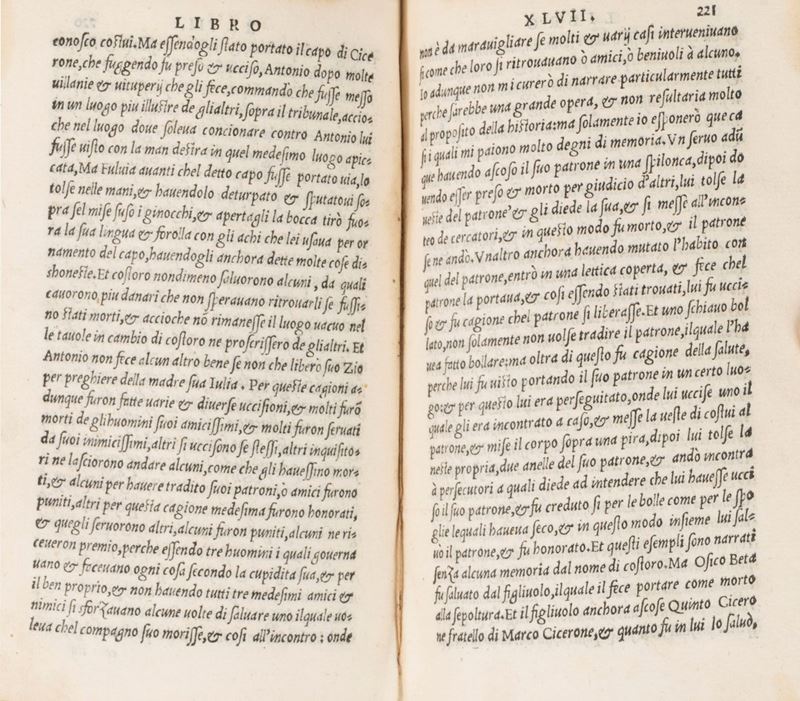 LIBRO
conosco costui. Ma essendogli stato portato il capo di Cice
rone, che fuggendo fu preso & ucciso, Antonio dopo molte
uillanie & uituperij che gli fece, commandò che fusse messo
in un luogo piu illustre de glialtri, sopra il tribunale, accio-
che nel luogo doue soleua concionare contro Antonio lui
fusse uisto con la man destra in quel medesimo luogo apic-
cata, Ma Fuluia auanti chel detto capo fusse portato uia, lo
tolse nelle mani, & hauendolo deturpato & sputatoui so-
pra sel mise suso i ginocchi, & apertagli la bocca tirò fuo-
ra la sua lingua & forolla con gli achi che lei usaua per or
namento del capo, hauendogli anchora dette molte cose di-
shoneste. Et costoro nondimeno saluorono alcuni, da quali
cauorono, piu danari che non sperauano ritrouarli se fussi-
no stati morti, & accioche nō rimanesse il luogo uacuo nel
le tauole in cambio di costoro ne proscrissero de glialtri. Et
Antonio non fece alcun altro bene se non che liberò suo Zio
per preghiere della madre sua Iulia. Per queste cagioni a-
dunque furon fatte uarie & diuerse uccisioni, & molti furō
morti de glihuomini suoi amicissimi, & molti furon seruati
da suoi inimicissimi, altri si uccisono se stessi, altri inquisito-
ri ne lasciorono andare alcuni, come che gli hauessino mor-
ti, & alcuni per hauere tradito suoi patroni, ò amici furono
puniti, altri per questa cagione medesima furono honorati,
& quegli seruorono altri, alcuni furon puniti, alcuni ne ri-
ceueron premio, perche essendo tre huomini i quali gouerna
uano & faceuano ogni cosa secondo la cupidita sua, & per
il ben proprio, & non hauendo tutti tre medesimi amici &
nimici si sforzauano alcune uolte di saluare uno ilquale uo-
leua chel compagno suo morisse, & cosi all'incontro: onde
XLVII. 221
non è da marauigliare se molti & uarij casi interueniuano
si come che loro si ritrouauano ò amici, ò beniuoli à alcuno.
Io adunque non mi curerò di narrare particularmente tutti
perche sarebbe una grande opera, & non resultaria molto
al proposito della historia: ma solamente io esponerò que ca
si i quali mi paiono molto degni di memoria. Vn seruo adū
que hauendo ascoso il suo patrone in una spilonca, dipoi do
uendo esser preso & morto per giudicio d'altri, lui tolse la
ueste del patrone & gli diede la sua, & si messe all'incon-
tro de cercatori, & in questo modo fu morto, & il patrone
se ne andò. Vnaltro anchora hauendo mutato l'habito con
quel del patrone, entrò in una lettica coperta, & fece chel
patrone la portaua, & cosi essendo stati trouati, lui fu ucci-
so & fu cagione chel patrone si liberasse. Et uno schiauo bol
lato, non solamente non uolse tradire il patrone, ilquale l'ha
uea fatto bollare: ma oltra di questo fu cagione della salute,
perche lui fu uisto portando il suo patrone in un certo luo-
go: & per questo lui era perseguitato, onde lui uccise uno il
quale gli era incontrato a caso, & messe la ueste di costui al
patrone, & mise il corpo sopra una pira, dipoi lui tolse la
ueste propria, due anelle del suo patrone, & andò incontra
à persecutori a quali diede ad intendere che lui hauesse ucci
so il suo patrone, & fu creduto si per le bolle come per le spo
glie lequali haueua seco, & in questo modo insieme lui sal-
uò il patrone, & fu honorato. Et questi esempli sono narrati
senza alcuna memoria dal nome di costoro. Ma Osico Beta
fu saluato dal figliuolo, ilquale il fece portare come morto
alla sepoltura. Et il figliuolo anchora ascose Quinto Cicero
ne fratello di Marco Cicerone, & quanto fu in lui lo saluò,